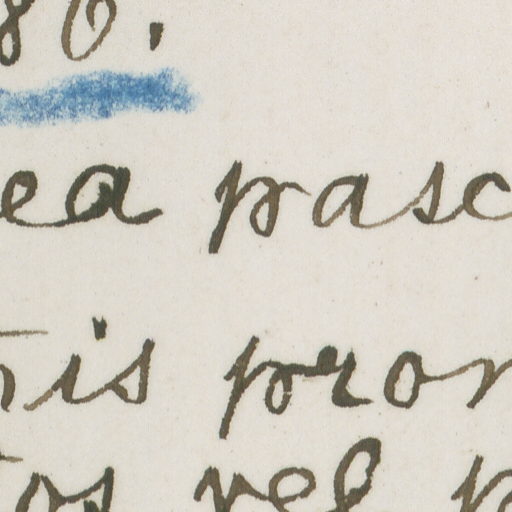 86.
ea pasc
is pror
os vel p